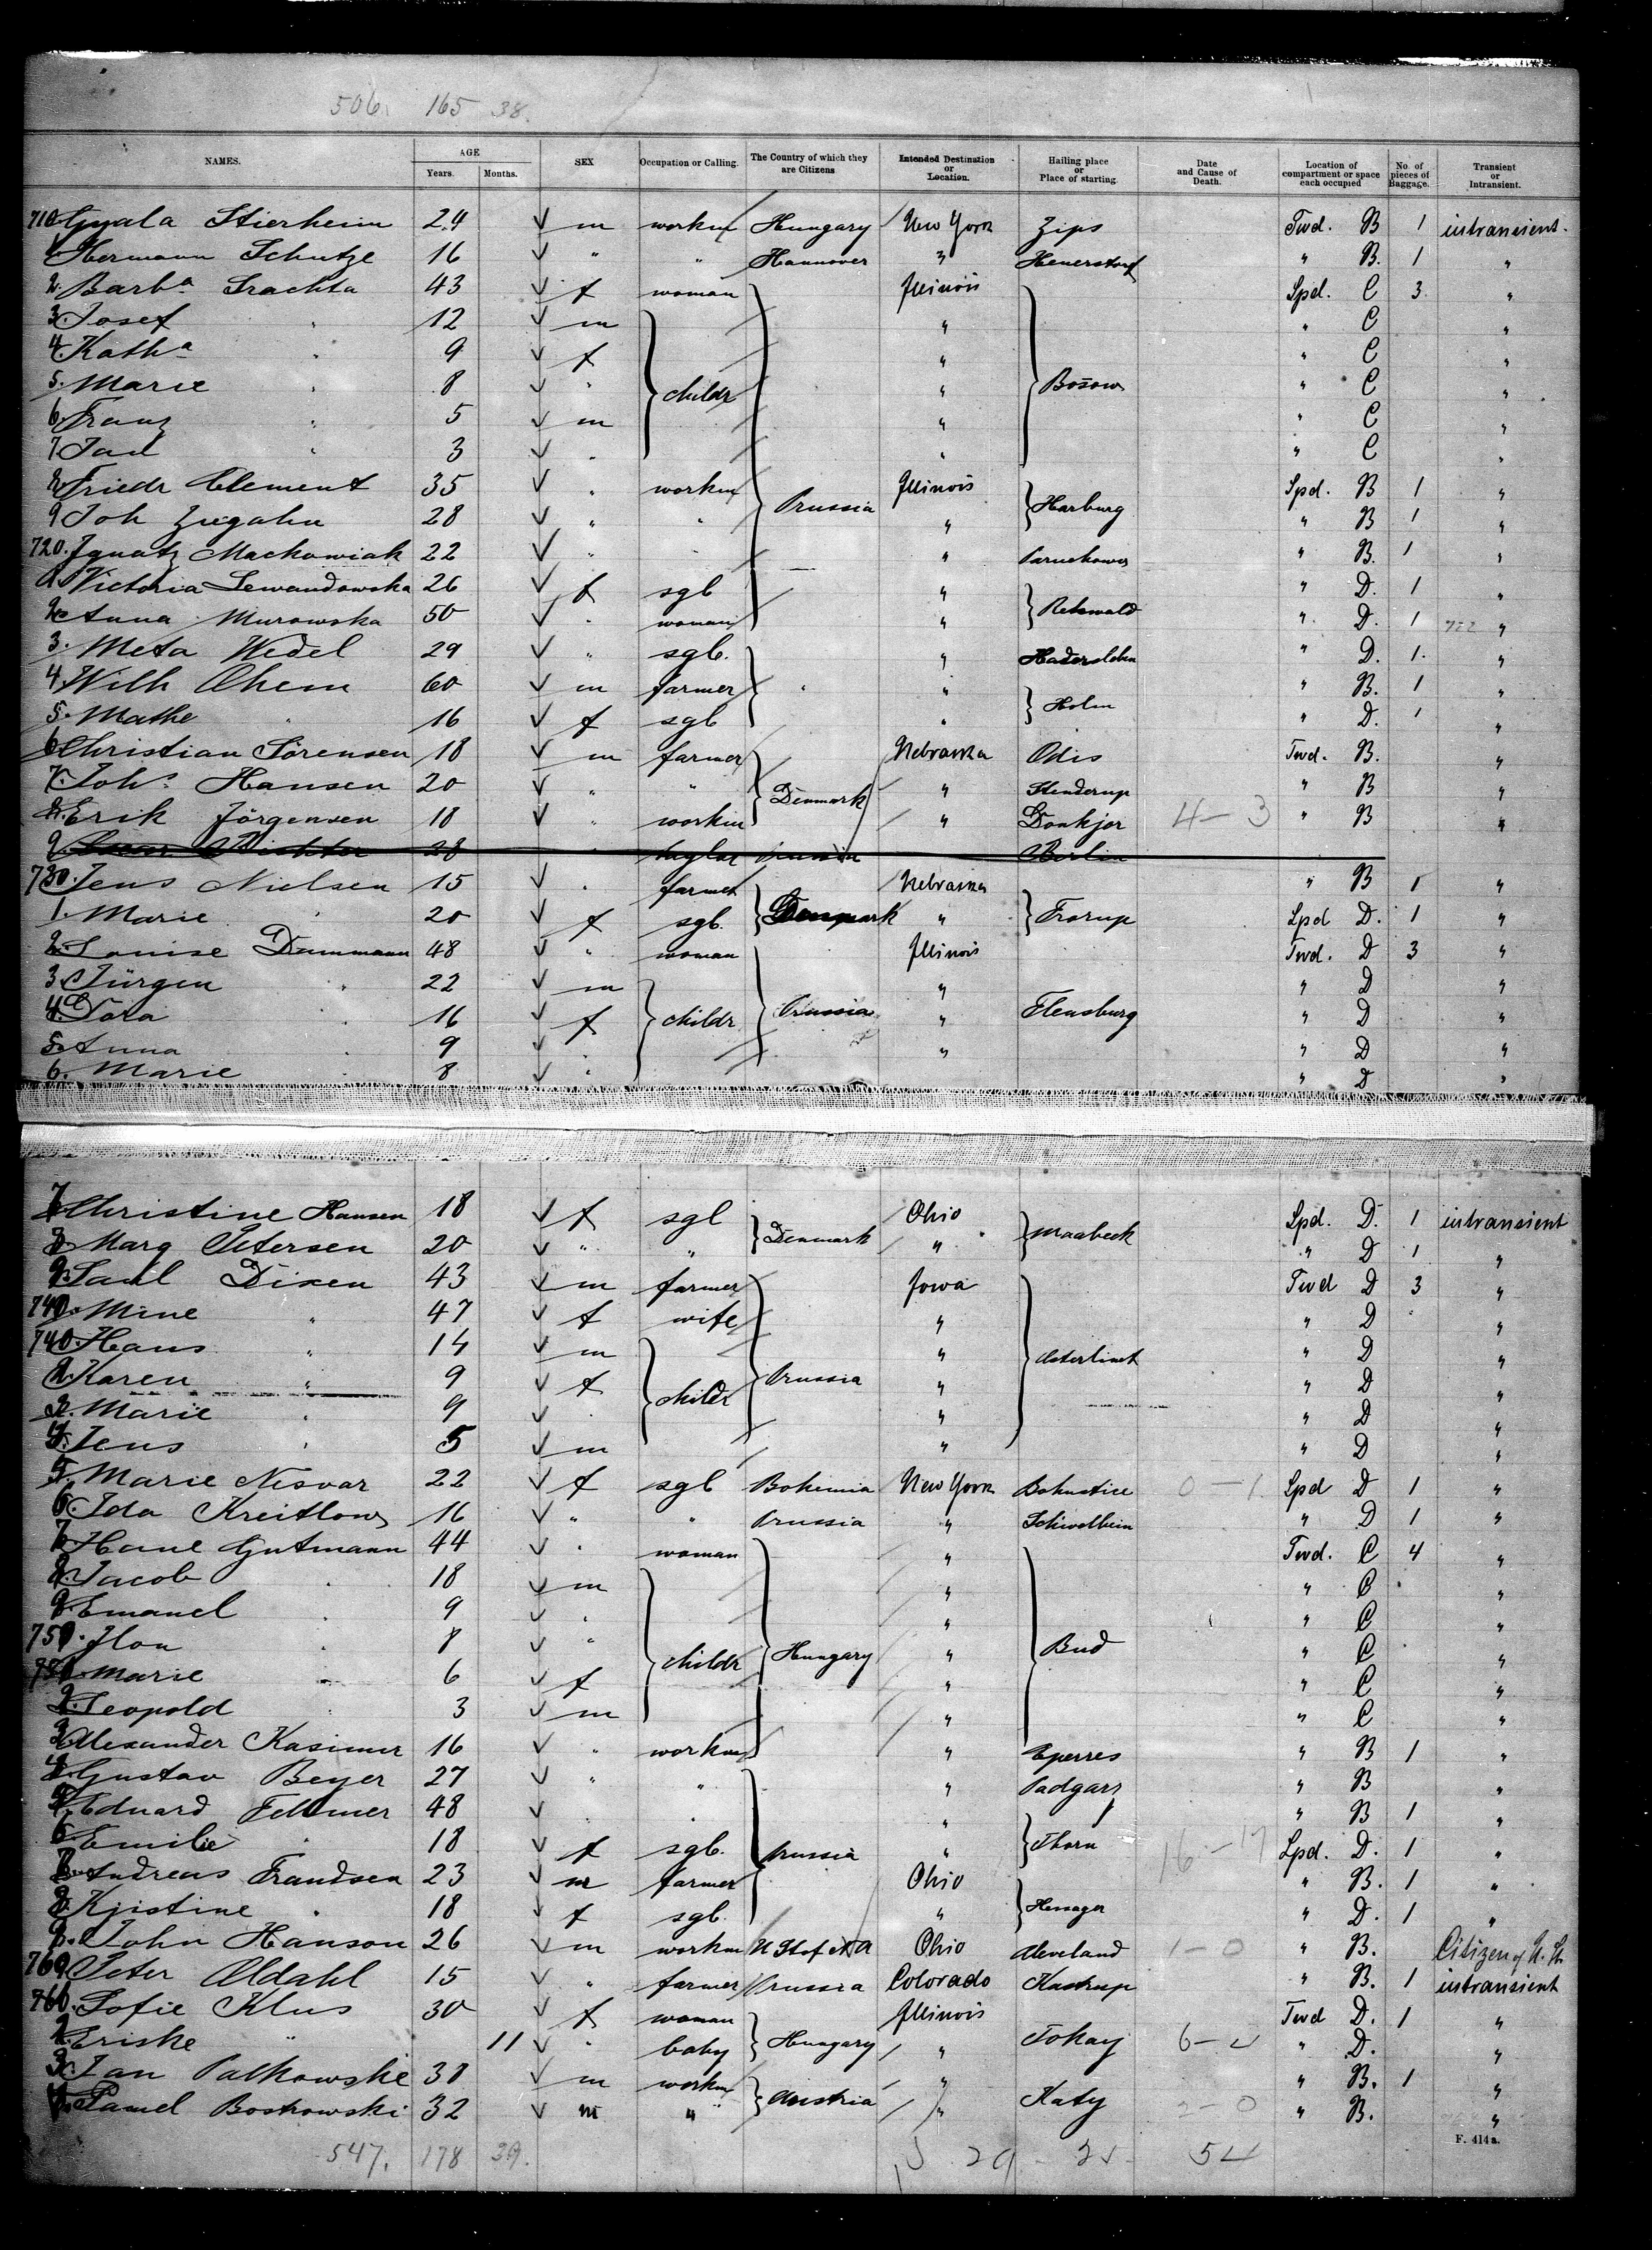 506. 165 38.
NAMES. AGE Years. Months. SEX Occupation or Calling. The Country of which they are Citizens Intended Destination or Location. Hailing place or Place of starting. Date and Cause of Death. Location of compartment or space each occupied No. of pieces of Baggage. Transient or Intransient.
710 Gyala Stierheim 24 m workm Hungary New York Zips Twd. B 1 intransient.
1. Hermann Schutze 16 " " Hannover " B. 1 "
2. Barba Srachta 43 f woman Illinois Spd. C 3 "
3. Josef " 12 m " " C "
4. Katha " 9 f " " C "
5. Marie " 8 " childr " Bosow " C "
6. Franz " 5 m " " C "
7. " 3 " " " C "
8. Friedr Clement 35 " workm Prussia Illinois Harburg Spd. B 1 "
9. Joh Ziegahn 28 " " " " B 1 "
720. Ignatz Mackowiak 22 " " " " B. 1 "
Victoria Lewandowska 26 f sgl " " D. 1 "
2. Anna Murowska 50 " woman " " D. 1 722 "
3. Meta Wedel 29 " sgl. " Hadersleben " D. 1. "
4. Wilh Ohem 60 m farmer " " Holm " B. 1 "
5. Mathe " 16 f sgl " " D. 1 "
6. Christian Sörensen 18 m farmer Nebraska Odis Twd. B. "
7. Johs Hansen 20 " " Denmark " Stenderup " B "
8. Erik Jörgensen 18 " workm " Donkjer 4-3 " B "
9 28 Prussia Berlin
730. Jens Nielsen 15 " farmer Nebraska " B 1 "
1. Marie " 20 f sgl. Denmark " Frorup Spd D. 1 "
2. Louise Dammann 48 " woman Illinois Twd. D 3 "
3. Jürgen " 22 m " " D "
4. Dora " 16 f childr Prussia " Flensburg " D "
5. Anna " 9 " " " D "
6. Marie " 8 " " D "
7. Christine Hansen 18 f sgl Ohio Spd. D. 1 intransient
8. Marg Petersen 20 " " Denmark " Maabeck " D 1 "
9. Paul Dixen 43 m farmer Iowa Twd D 3 "
740. Mine " 47 f wife " " D "
740. Hans " 14 m " " D "
2. Karen " 9 f childr Prussia " " D "
3. Marie " 9 " " " D "
4. Jens " 5 m " " D "
5. Marie Nesvar 22 f sgl Bohemia New York 0-1 Spd D 1 "
6. Ida Kreitlow 16 " " Prussia " Schivelbein " D 1 "
7. Hane Gutmann 44 " woman " Twd. C 4 "
8. Jacob " 18 m " " C "
9. Emanel " 9 " " " C "
750. Ilon " 8 " childr Hungary " Bud " C "
750 Marie " 6 f " " C "
2. Leopold " 3 m " " C "
3. Alexander Kasimer 16 " workm " Eperres " B 1 "
4. Gustav Beyer 27 " " " " B "
5. Eduard Fellmer 48 " " " " B 1 "
6. Emilie " 18 f sgl. Prussia " Thorn 16-17 Spd. D. 1 "
7. Andreas Frandsen 23 m farmer Ohio " B. 1 "
8. Kjistine " 18 f sgl. " " D. 1 "
9. John Hanson 26 m workm U St of NA Ohio Cleveland 1-0 " B. Citizen of U. St.
760 Peter Oldahl 15 " farmer Prussia Colorado Kastrup " B. 1 intransient
760. Sofie Klus 30 f woman Illinois Twd D. 1 "
2. Eriske " 11 " baby Hungary " Tokay " D. "
3. Jan Palkowski 38 m workm " " B. 1 "
4. Pawel Bostrowski 32 m " Austria " Katy 2-0 " B. "
F. 414 a.
547. 178 39. 29